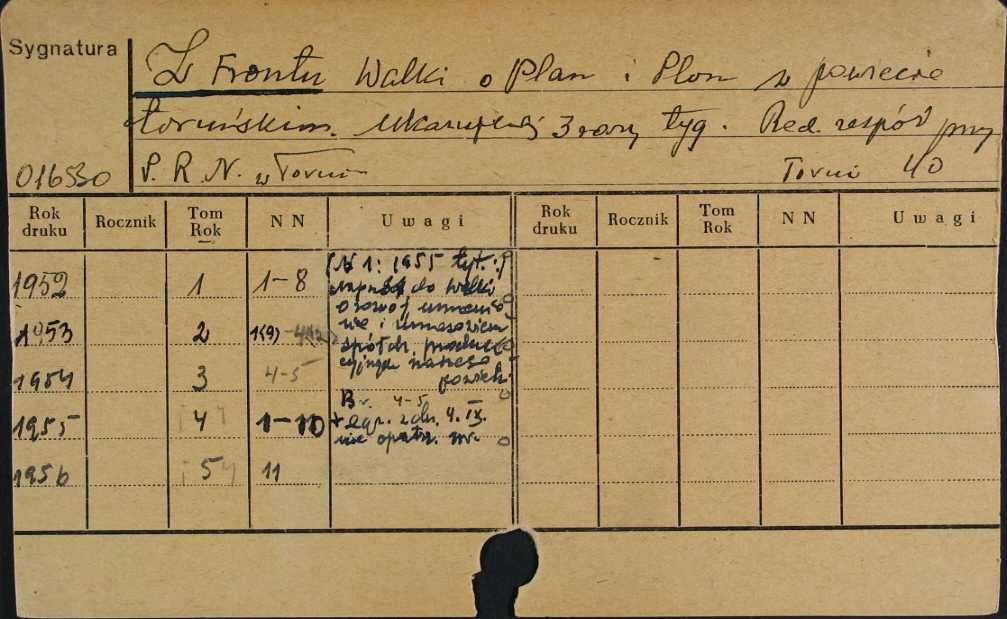 Sygnatura
Z Frontu Walki o Plan i Plon w powiecie
toruńskim. 3 razy tyg. Red. zespół przy
016530 P. R. N. w Toruniu Toruń 40
Rok druku Rocznik Tom Rok N N Uwagi Rok druku Rocznik Tom Rok N N Uwagi
1952 1 1-8
1953 2 1(9)
1954 3 4-5
1955 4 1-10
1956 5 11
(Nr 1: 1955 tyt.:
do walki
o rozwój
nie i
spółdz.
naszego
powiatu
Br. 4-5
+ egz. z dn. 4. IX.
nie opatrz. nr.